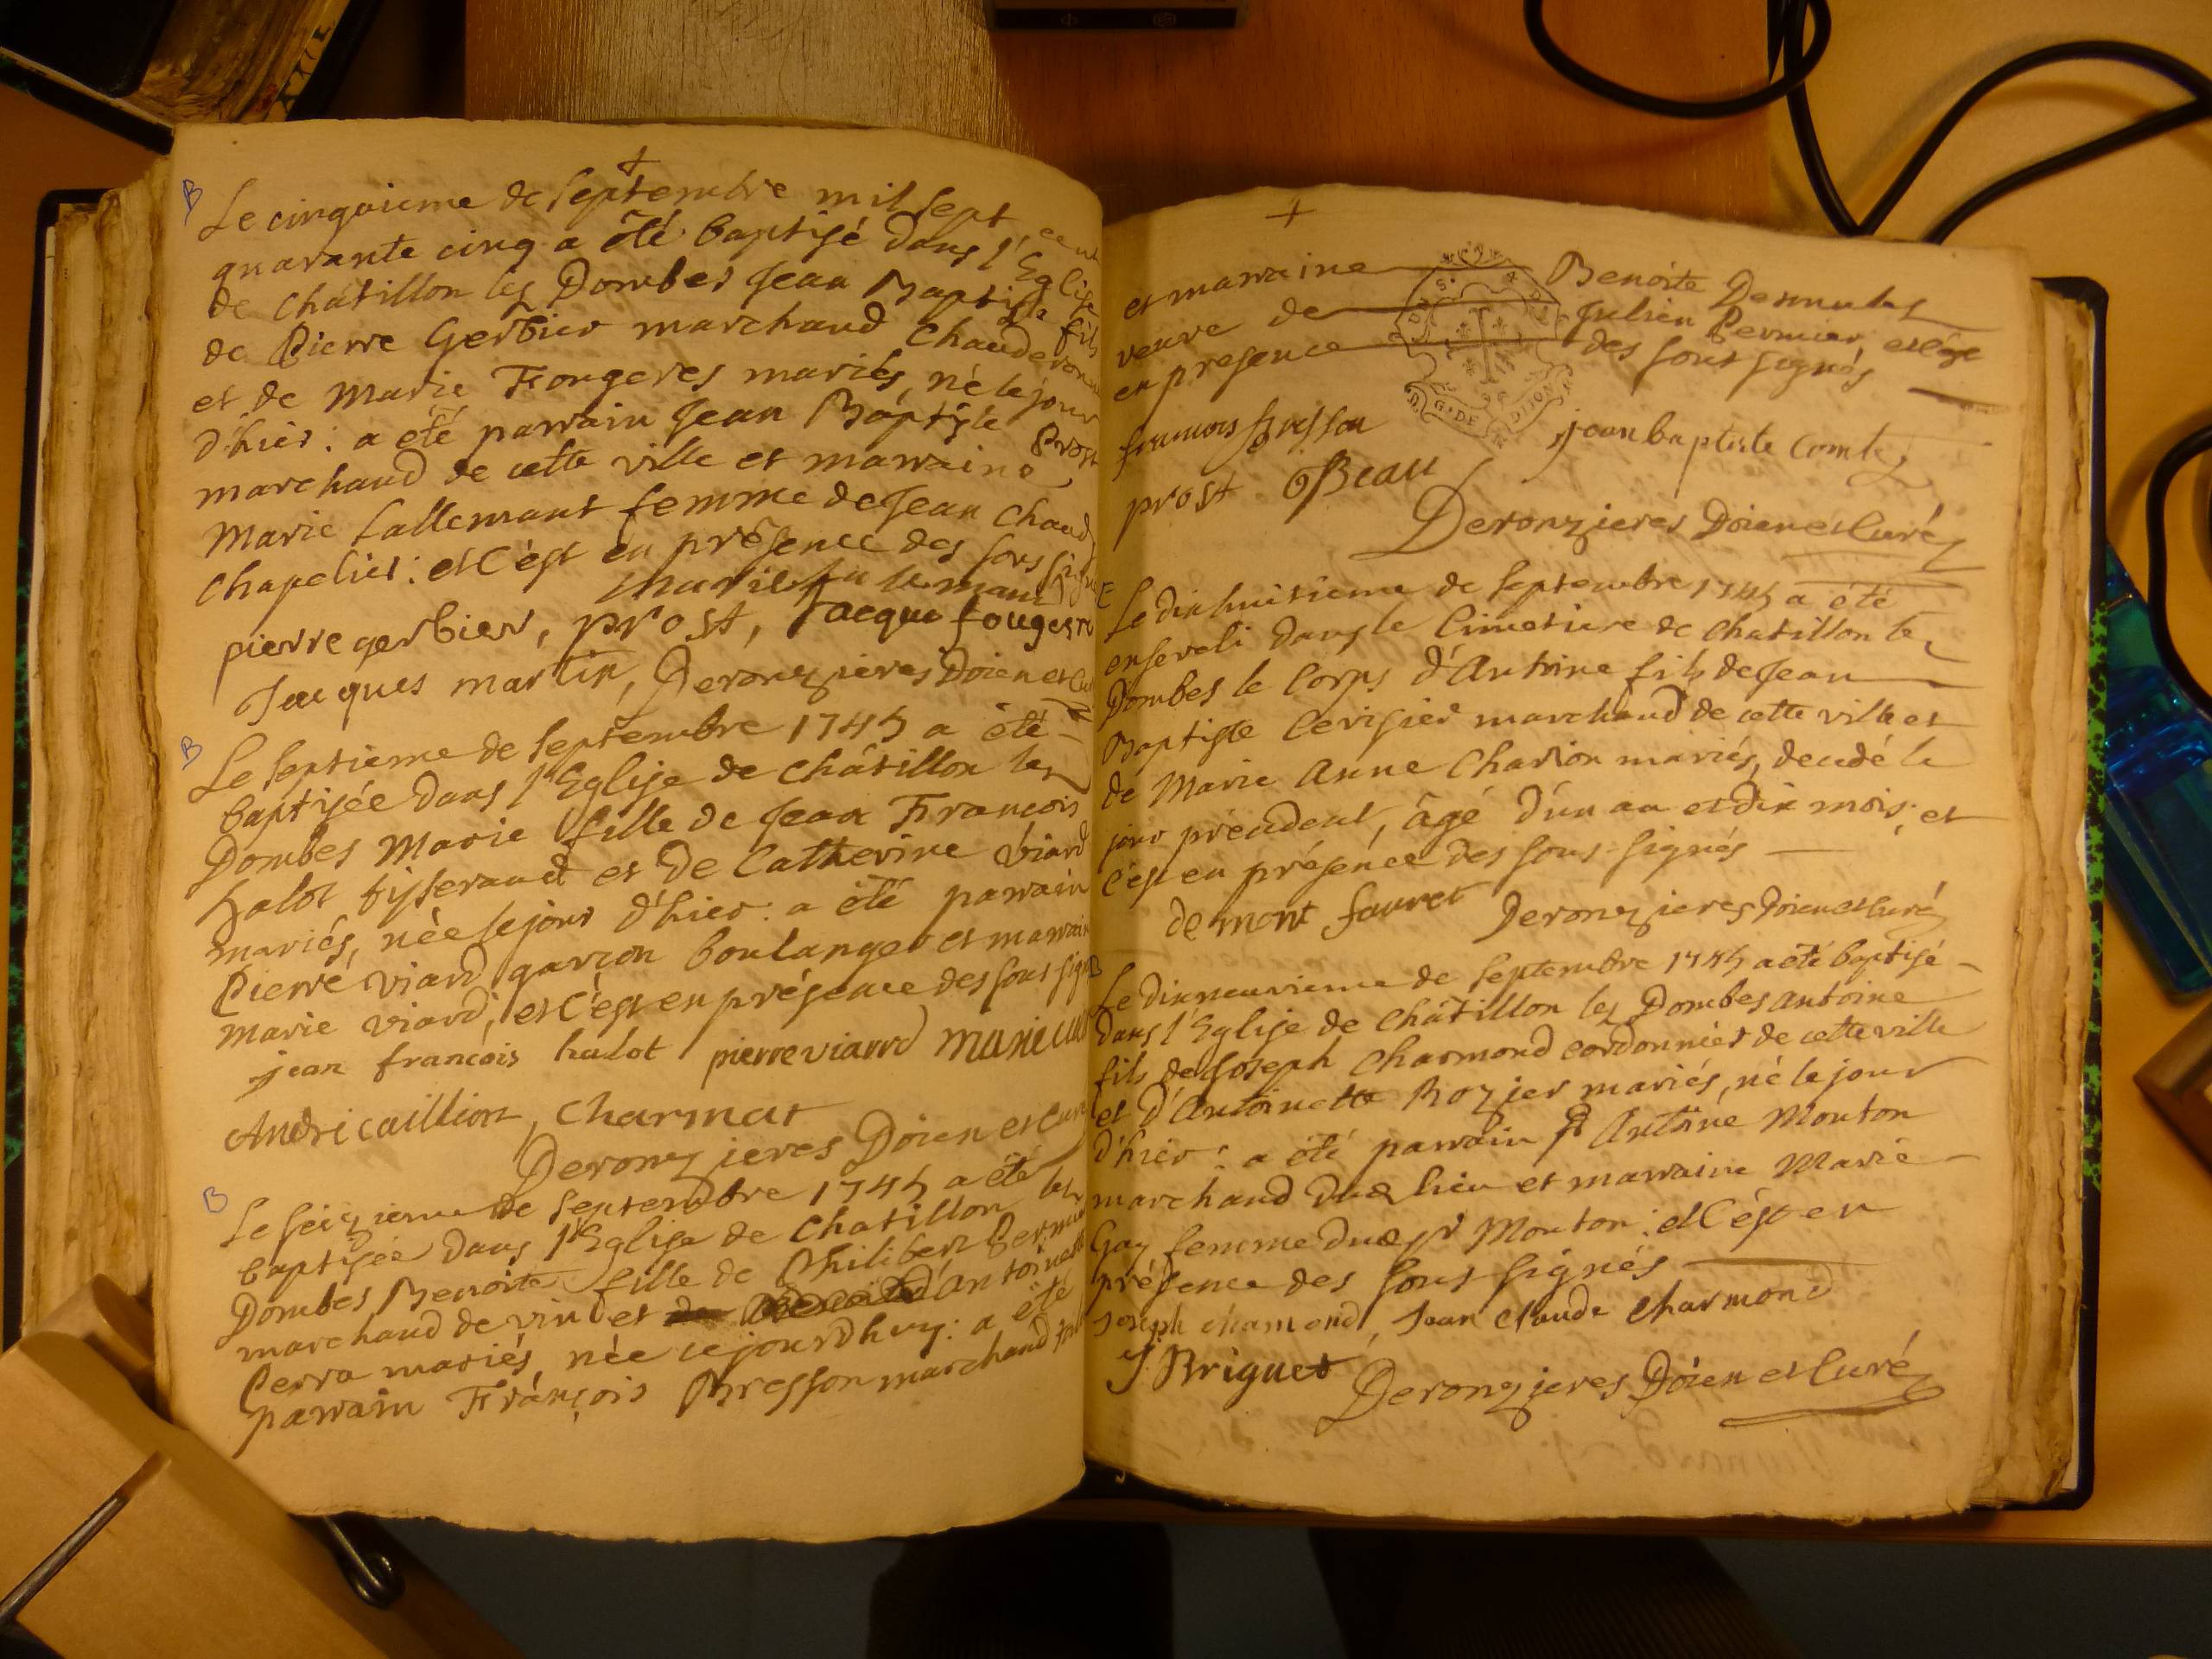 B
Le cinquieme de septembre mil sept cent
quarante cinq a été baptisé dans l'Eglise
de Châtillon les Dombes Jean Baptiste fils
de Pierre Gerbier marchand Chauderonnier
et de Marie Fougeres mariés, né le jour
d'hier : a été parrain Jean Baptiste Prost
marchand de cette ville et marraine
Marie Lallemant femme de Jean Chaud
Chapelier : et C'est en présence des sous signés
marie la lemant
pierre gerbier, prost, Jacque fougere
Jacques martin, Deronzieres Doien et Curé
B
Le septieme de septembre 1745 a été
baptisée dans l'Eglise de Châtillon les
Dombes Marie fille de Jean François
halot tisserand et de Catherine Viard
mariés, née le jour d'hier : a été parrain
Pierre Viard garçon boulanger et marraine
Marie Viard, et C'est en présence des sous signés
jean françois halot pierre viarrd marie
André caillion, Charmat
Deronzieres Doien et Curé
B
Le seizieme de septembre 1745 a été
baptisée dans l'Eglise de Chatillon les
Dombes Benoite fille de Philibert Permier
marchand de vin et d'Antoinette
Perra mariés, née ce jourdhuy : a été
parrain François Bresson marchand
et marraine Benoite Desmules
veuve de Julien Permier, et C'est
en presence des sous signés
françois bresson jean baptiste Comte
prost Beau
Deronzieres Doien et Curé
E
Le dix huitieme de septembre 1745 a été
enseveli dans le Cimetiere de Chatillon les
Dombes le Corps d'Antoine fils de Jean
Baptiste Cerisier marchand de cette ville et
de Marie Anne Charion mariés, decedé le
jour précedent, âgé d'un an et dix mois, et
C'est en présence des sous-signés
de mont fauret Deronzieres Doien et Curé
B
Le dix neuvieme de septembre 1745 a été baptisé
dans l'Eglise de Châtillon les Dombes Antoine
fils de Joseph Charmond cordonnier de cette ville
et d'Antoinette Rozier mariés, né le jour
d'hier : a été parrain Sr Antoine Mouton
marchand dud lieu et marraine Marie
Gay femme dud Sr Mouton : et C'est en
présence des sous signés
Joseph chamond, Jean Claude Charmond
J Briguet Deronzieres Doien et Curé
G. DE DIJON